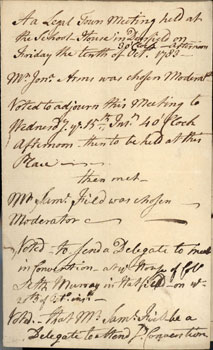 At a Legal Town Meeting held at
the School House in Deerfield on
3 oClock afternoon
Friday the tenth of Oct. 1783
Mr. Jona. Arms was chosen Moderatr
Voted to adjourn this Meeting to
Wednesdy. ye 15th Inst. 4 oClock
Afternoon then to be held at this
Place
then met
Mr. Saml. Field was chosen
Moderator
Voted to send a Delegate to meet
in Convention at ye House of Col
Seth Murray in Hatfield on ye
20th of
Voted that Mr. Saml. Field be a
Delegate to attend sd. Convention